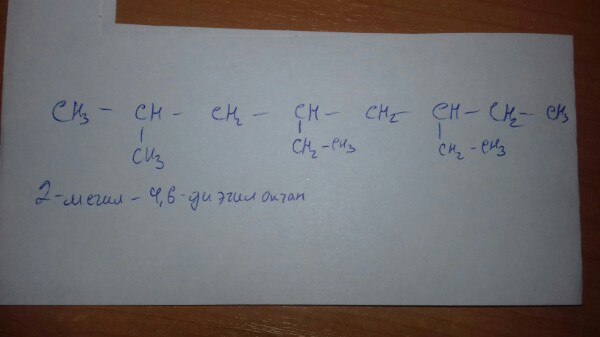 CH3 - CH - CH2 - CH - CH2 - CH - CH2 - CH3
CH3 CH2-CH3 CH2-CH3
2-метил-4,6-диэтилоктан